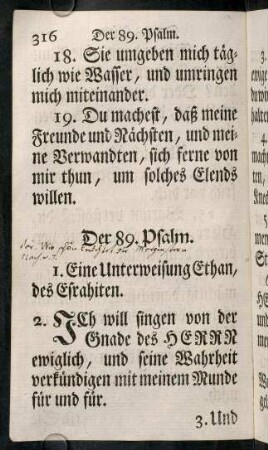 316 Der 89. Psalm.
18. Sie umgeben mich täg-
lich wie Wasser, und umringen
mich miteinander.
19. Du machest, daß meine
Freunde und Nächsten, und mei-
ne Verwandten, sich ferne von
mir thun, um solches Elends
willen.
Der 89. Psalm.
1. Eine Unterweisung Ethan,
des Esrahiten.
2. ICh will singen von der
Gnade des HERRN
ewiglich, und seine Wahrheit
verkündigen mit meinem Munde
für und für.
3. Und